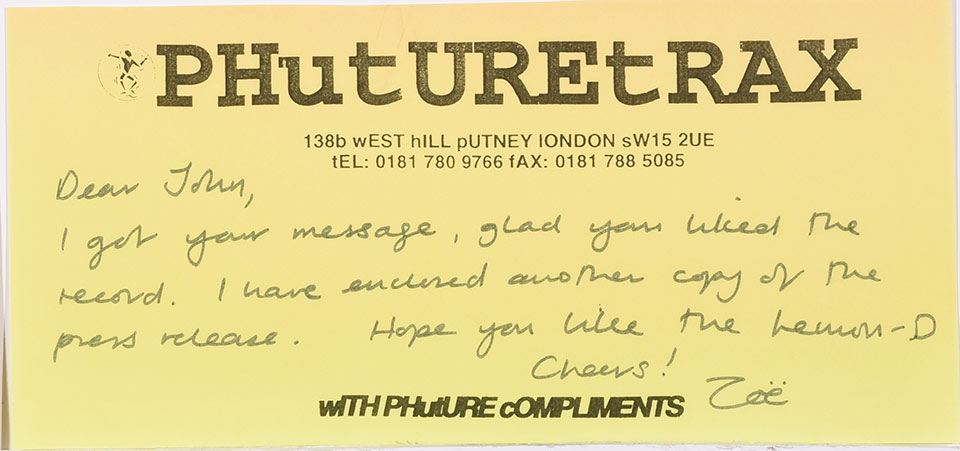 PHutUREtRAX
138b wEST hILL pUTNEY lONDON sW15 2UE
tEL: 0181 780 9766 fAX: 0181 788 5085
Dear John,
I got your message, glad you liked the
record. I have enclosed another copy of the
press release. Hope you like the Lemon-D
Cheers!
Zoë
wITH PHutURE cOMPLIMENTS